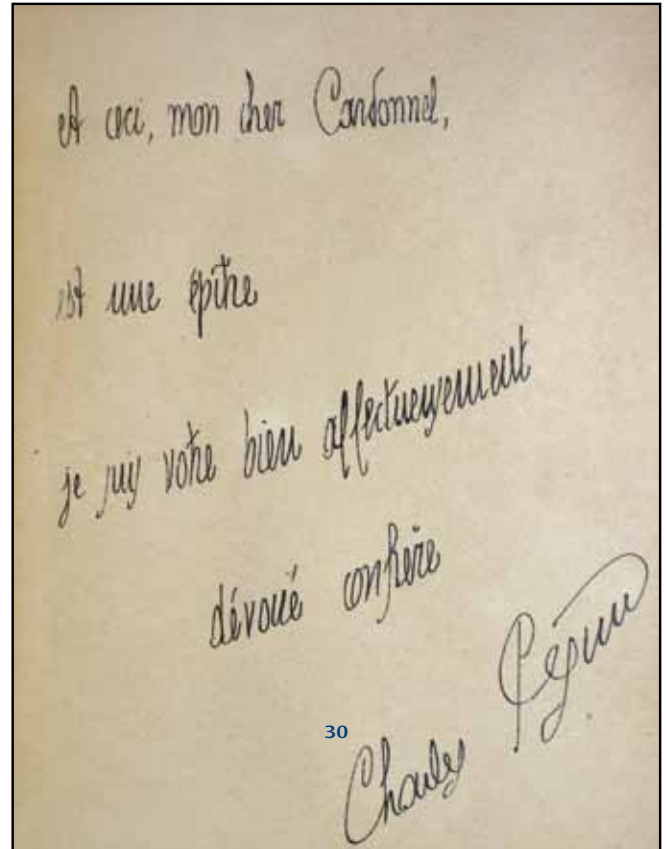 et ceci, mon cher Cardonnel,
est une épître
je suis votre bien affectueusement
dévoué confrère
30
Charles Péguy